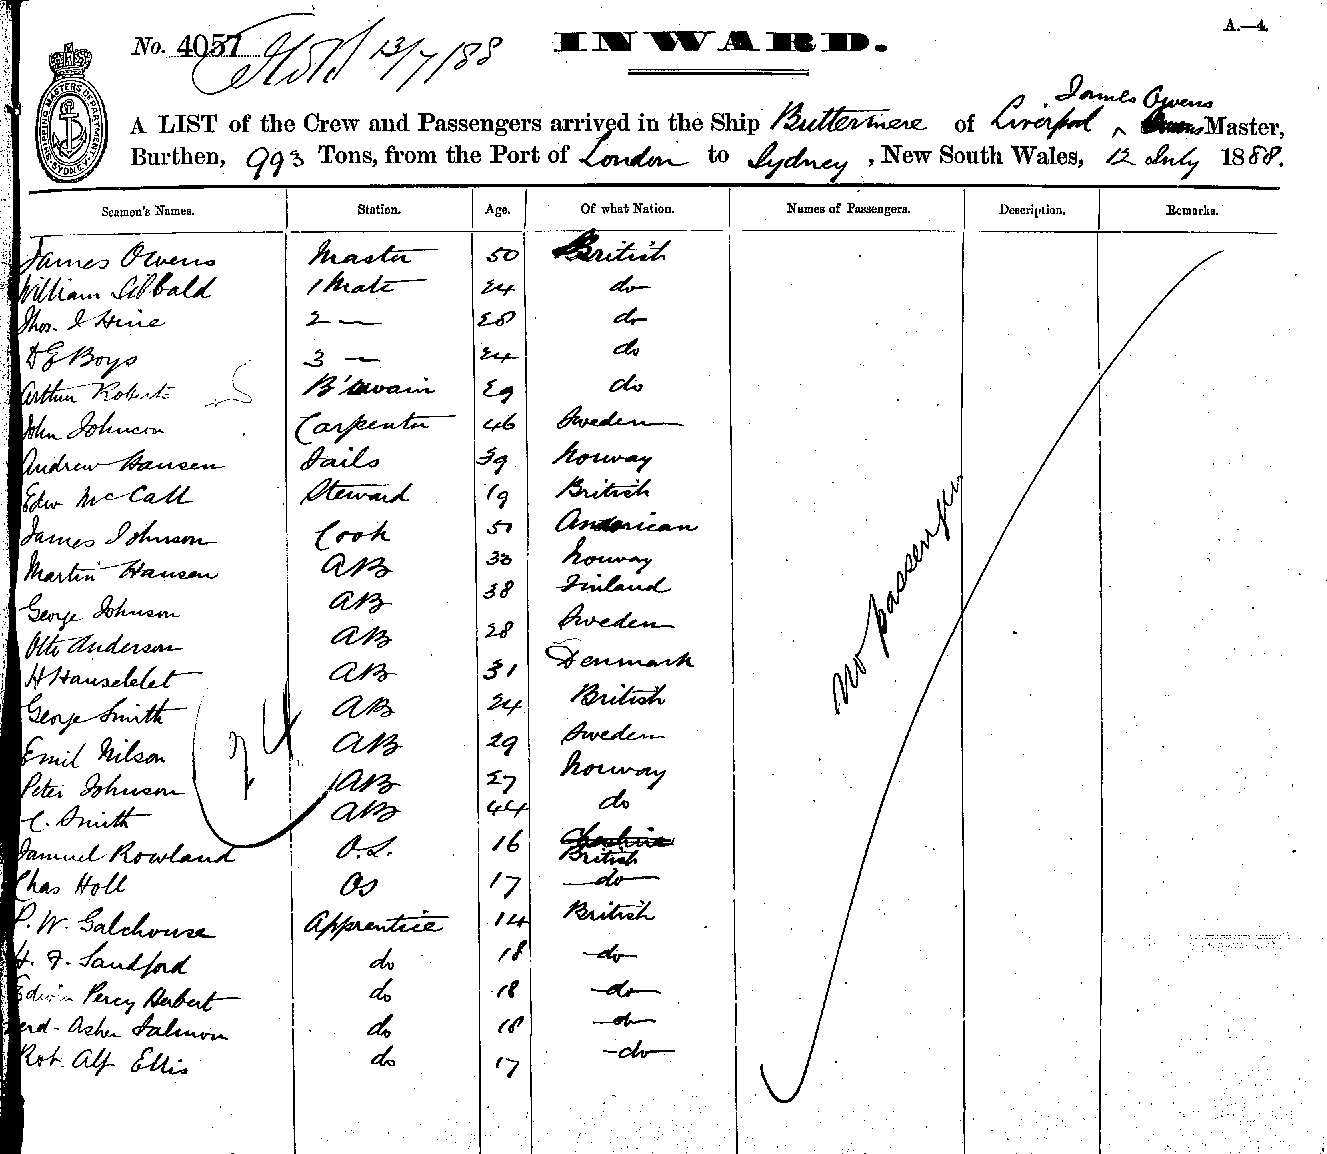 A.—4.
No. 4057 13/7/88 INWARD.
SHIPPING MASTERS DEPARTMENT SYDNEY
James Owens
A LIST of the Crew and Passengers arrived in the Ship Buttermere of Liverpool Master,
Burthen, 993 Tons, from the Port of London to Sydney, New South Wales, 12 July 1888.
Seamen's Names. Station. Age. Of what Nation. Names of Passengers. Description. Remarks.
James Owens Master 50 British
William Sibbald 1 Mate 24 do
Thos. J Hine 2 — 28 do
D E Boys 3 — 24 do
Arthur Roberts B'swain 29 do
John Johnson Carpenter 46 Sweden
Andrew Hansen Sails 39 Norway
Edw McCall Steward 19 British
James Johnson Cook 51 American
Martin Hansen AB 33 Norway
George Johnson AB 38 Finland
Otto Anderson AB 28 Sweden
H AB 31 Denmark
George Smith AB 24 British
Emil Nilson AB 29 Sweden
Peter Johnson AB 27 Norway
C. Smith AB 44 do
Samuel Rowland O.S. 16 British
Chas Holl OS 17 do
P. W. Galehouse Apprentice 14 British
H. F. Sandford do 18 do
Edwin Percy Herbert do 18 do
Ferd. Asher Salmon do 18 do
Rob. Alf Ellis do 17 do
24
No passengers